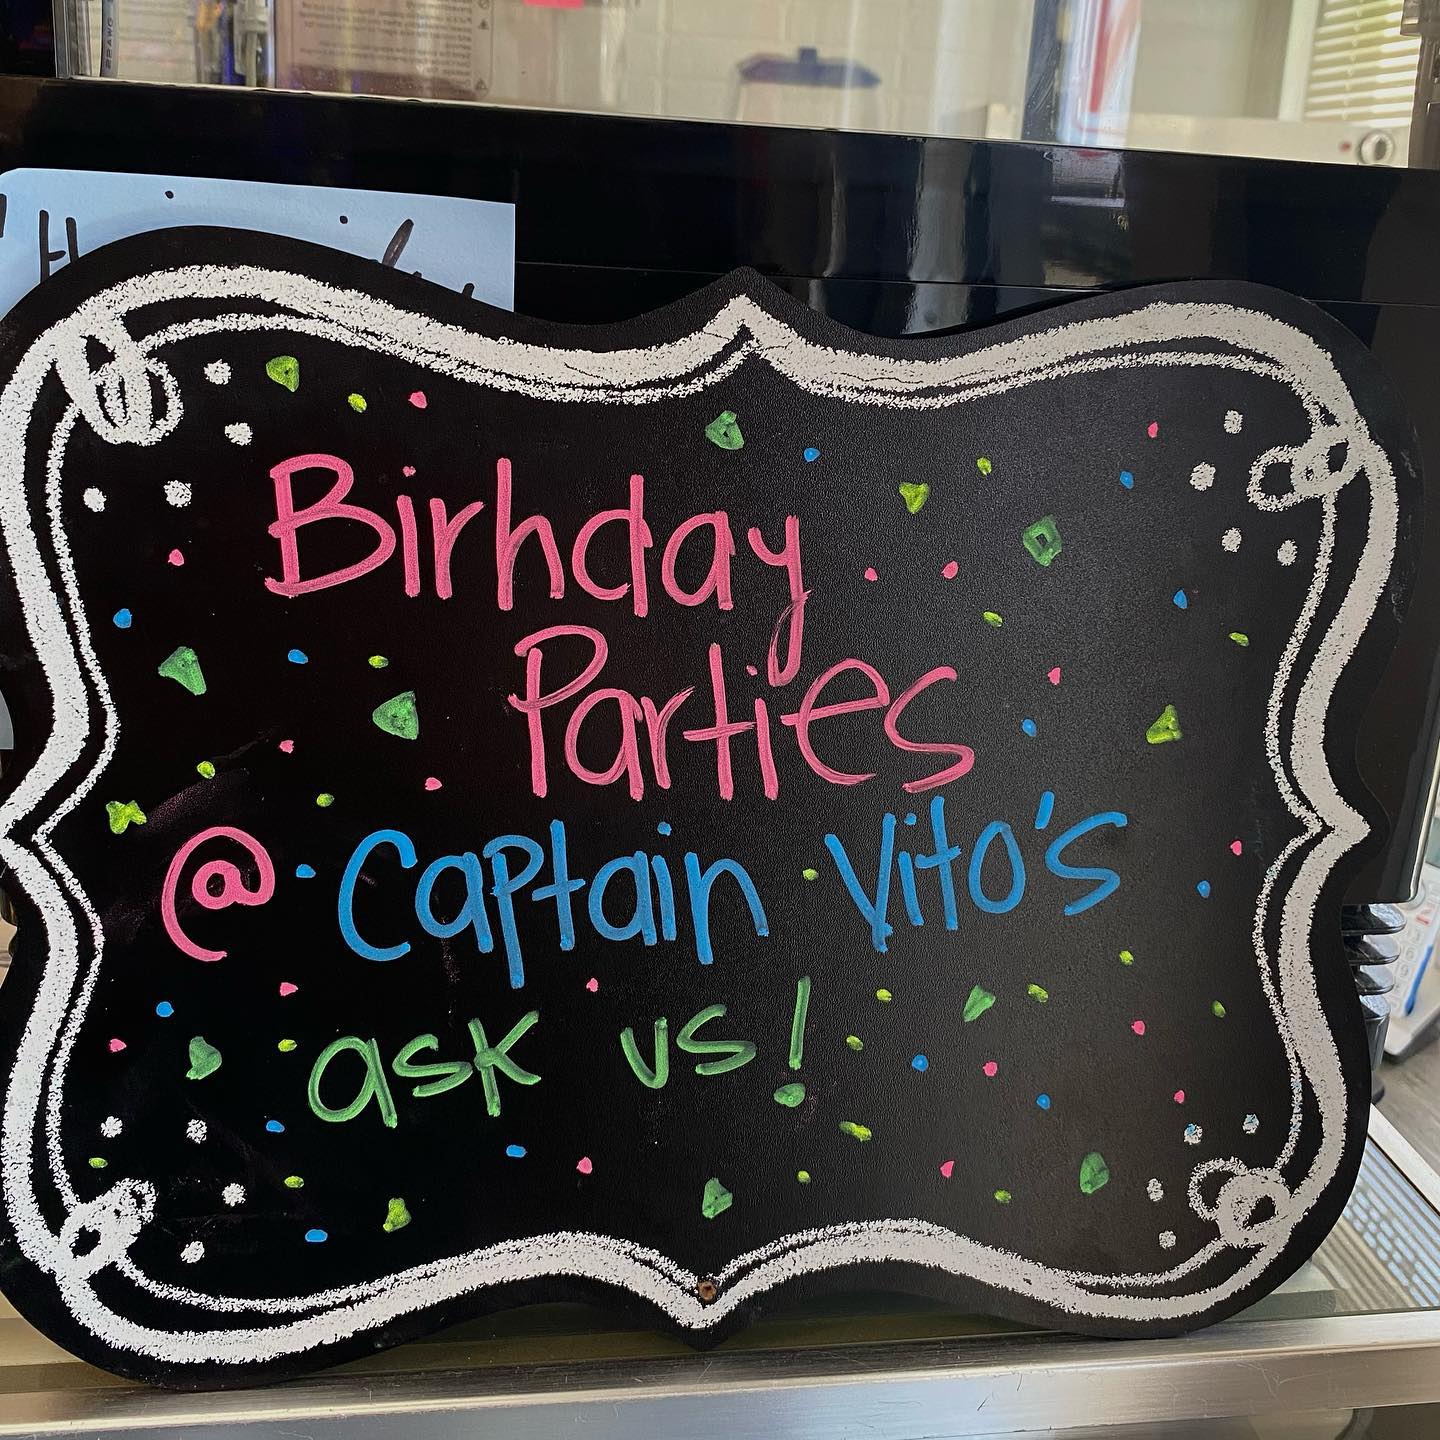 Birhday
Parties
@ Captain Vito's
ask us!